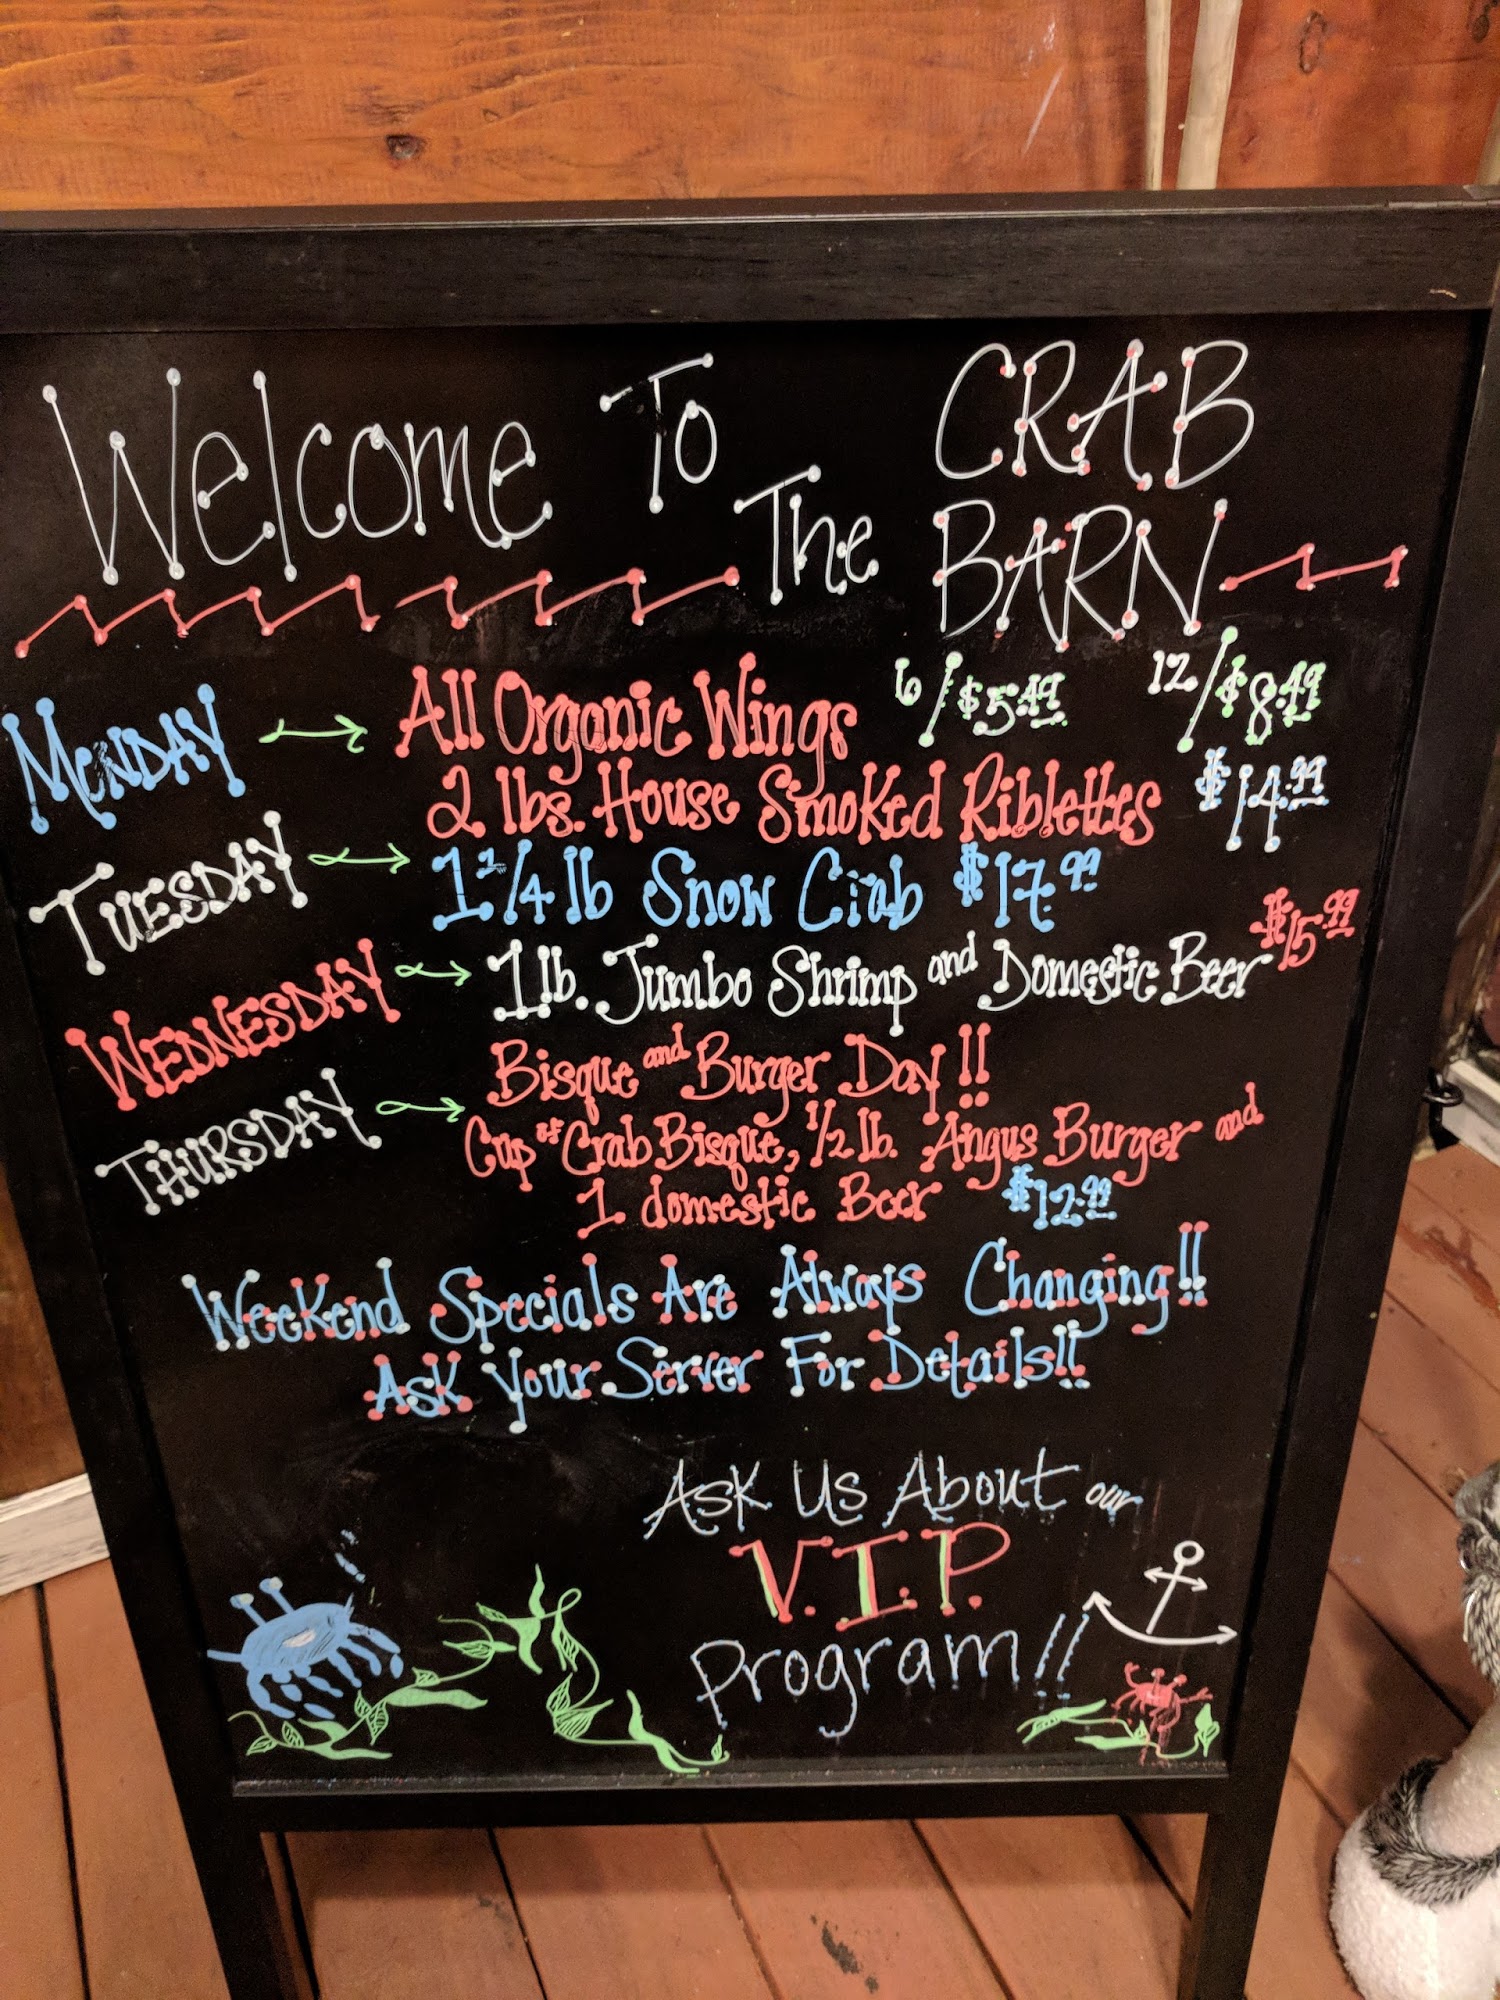 Welcome To The CRAB BARN
MONDAY → All Organic Wings 6/$5.49 12/$8.49
2 lbs. House Smoked Riblettes $14.99
TUESDAY → 1 1/4 lb Snow Crab $17.99
WEDNESDAY → 1 lb. Jumbo Shrimp and Domestic Beer $15.99
THURSDAY → Bisque and Burger Day!!
Cup of Crab Bisque, 1/2 lb. Angus Burger and
1 domestic Beer $12.99
Weekend Specials Are Always Changing!!
Ask Your Server For Details!!
Ask Us About our
V.I.P.
Program!!